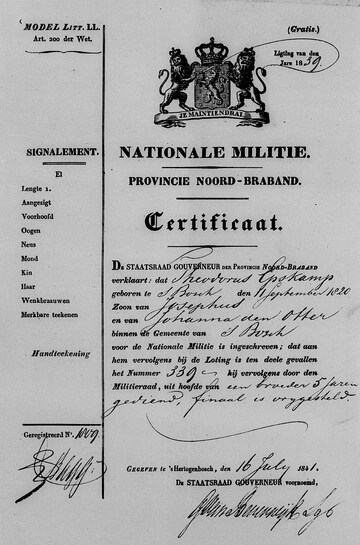 MODEL LITT. LL.
Art. 200 der Wet.
(Gratis.)
Ligting van den
Jare 1839
JE MAINTIENDRAI
SIGNALEMENT.
El
Lengte 1.
Aangezigt
Voorhoofd
Oogen
Neus
Mond
Kin
Haar
Wenkbraauwen
Merkbare teekenen
Handteekening
Geregistreerd N°. 1009.
NATIONALE MILITIE.
PROVINCIE NOORD-BRABAND.
Certificaat.
DE STAATSRAAD GOUVERNEUR DER PROVINCIE NOORD-BRABAND
verklaart: dat Theodorus Epskamp
geboren te S Bosch den 11 September 1820
Zoon van Josephus
en van Johanna den Otter
binnen de Gemeente van S Bosch
voor de Nationale Militie is ingeschreven; dat aan
hem vervolgens bij de Loting is ten deele gevallen
het Nummer 339 hij vervolgens door den
Militieraad, uit hoofde van een broeder 5 jaren
gediend, finaal is vrygesteld.
GEGEVEN te 's Hertogenbosch, den 16 July 1841.
DE STAATSRAAD GOUVERNEUR voornoemd,